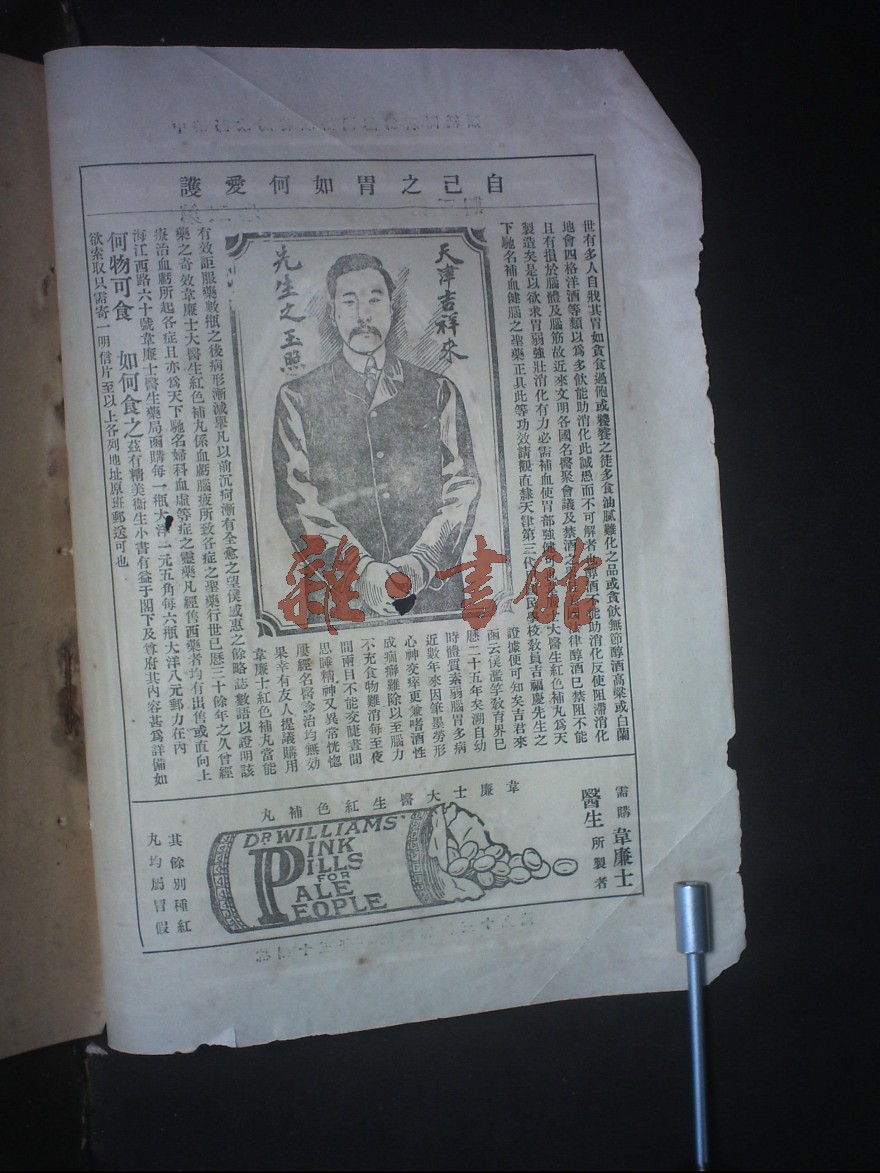 自己之胃如何愛護
世有多人自戕其胃如貪食過飽或饕餮之徒多食油膩難化之品或貪飲無節醇酒高粱或白蘭
地會四格洋酒等類以爲多飲能助消化此誠愚而不可解者也醇酒不能助消化反使阻滯消化
且有損於腦體及腦筋故近來文明各國名醫聚會議及禁酒之律醇酒已禁阻不能
製造矣是以欲求胃弱強壯消化有力必需補血使胃部強健士大醫生紅色補丸爲天
下馳名補血健腦之聖藥正具此等功效請觀直隸天津第三代民學校教員吉福慶先生之
天津吉祥來
先生之玉照
證據便可知矣吉君來
函云僕濫竽教育界已
歷二十五年矣溯自幼
時體質素弱腦胃多病
近數年來因筆墨勞形
心神交瘁更兼嗜酒性
成痼癖難除以至腦力
不充食物難消每至夜
間兩目不能交睫晝間
思睡精神又異常恍惚
屢經名醫診治均無効
果幸有友人提議購用
韋廉士紅色補丸當能
有效詎服藥數瓶之後病形漸減舉凡以前沉疴漸有全愈之望僕感惠之餘略誌數語以證明該
藥之奇效韋廉士大醫生紅色補丸係血虧腦疲所致各症之聖藥行世已歷三十餘年之久曾經
療治血虧所起各症且亦爲天下馳名婦科血虛等症之靈藥凡經售西藥者均有出售或直向上
海江西路六十號韋廉士醫生藥局函購每一瓶大洋一元五角每六瓶大洋八元郵力在內
何物可食 如何食之茲有精美衛生小書有益于閣下及尊府其內容甚爲詳備如
欲索取只需寄一明信片至以上各列地址原班郵送可也
需購韋廉士
醫生所製者
韋廉士大醫生紅色補丸
DR WILLIAMS'
PINK
PILLS
FOR
PALE
PEOPLE
其餘別種紅
丸均屬冒假
雜·書館